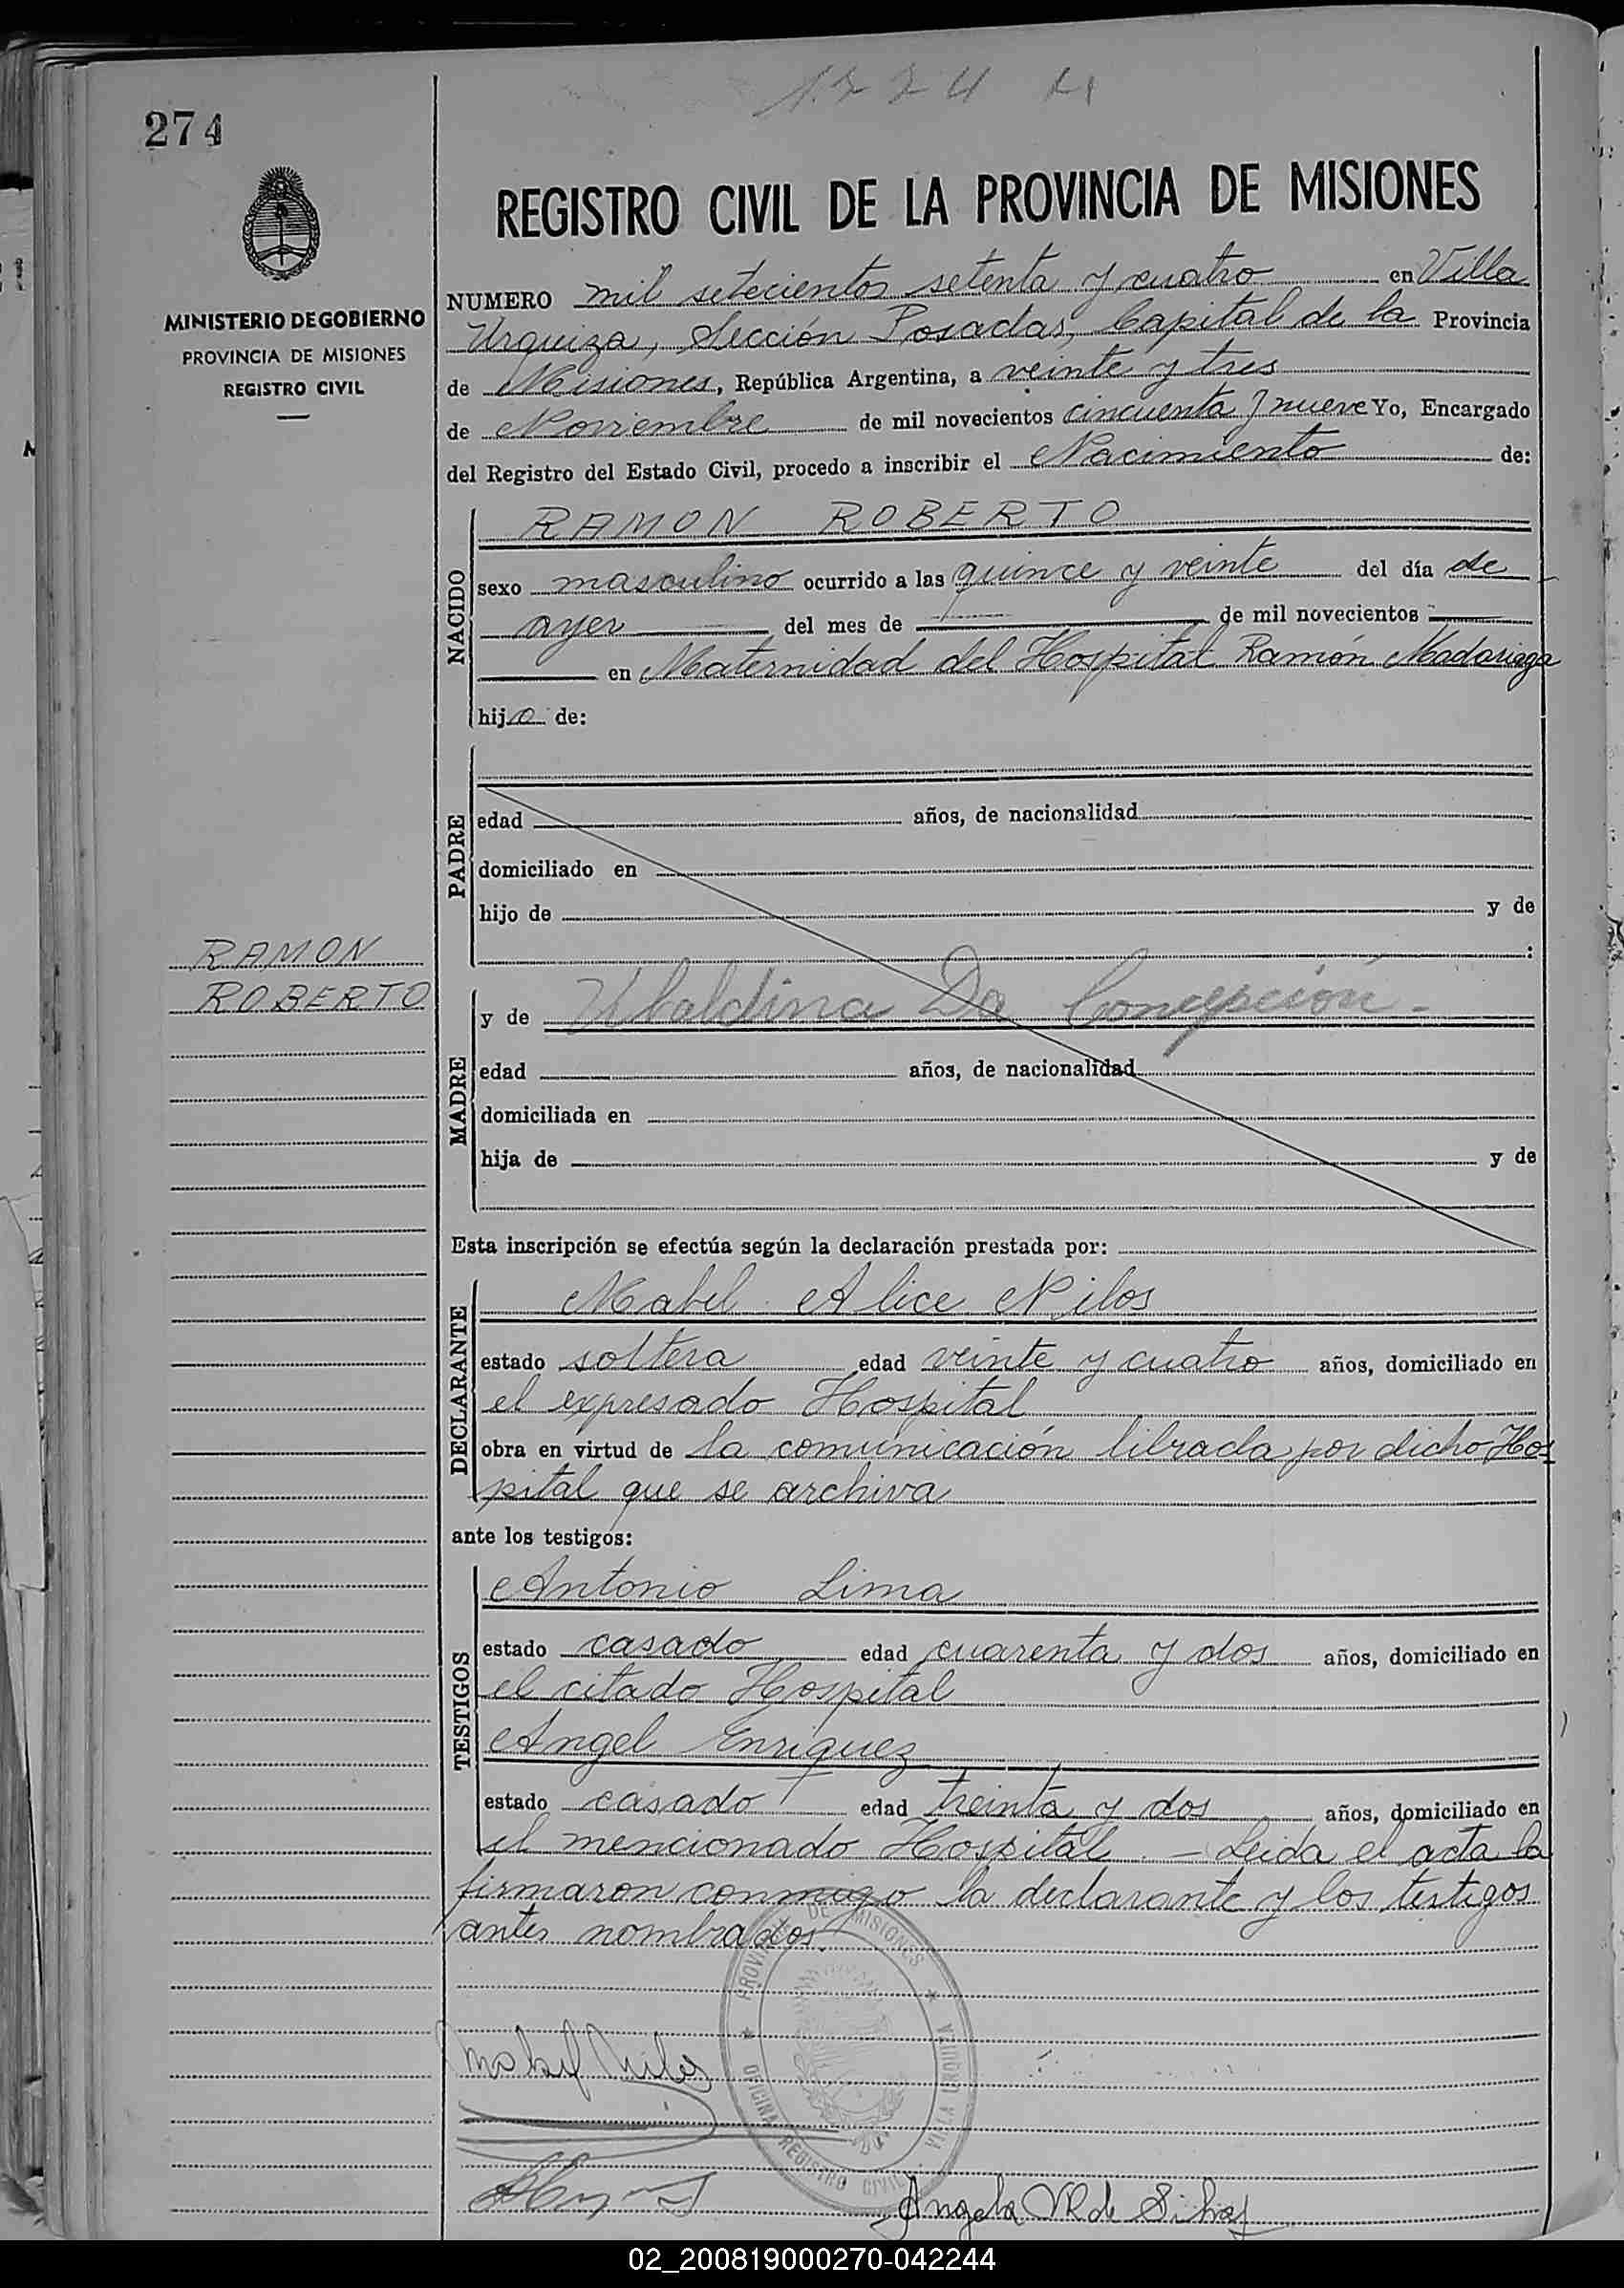 274
MINISTERIO DE GOBIERNO
PROVINCIA DE MISIONES
REGISTRO CIVIL
REGISTRO CIVIL DE LA PROVINCIA DE MISIONES
NUMERO mil setecientos setenta y cuatro en Villa
Urquiza, Sección Posadas, Capital de la Provincia
de Misiones, República Argentina, a veinte y tres
de Noviembre de mil novecientos cincuenta y nueve Yo, Encargado
del Registro del Estado Civil, procedo a inscribir el Nacimiento de:
NACIDO
RAMON ROBERTO
sexo masculino ocurrido a las quince y veinte del día de
ayer del mes de de mil novecientos
en Maternidad del Hospital Ramón Madariaga
hijo de:
PADRE
edad años, de nacionalidad
domiciliado en
hijo de y de
:
RAMON
ROBERTO
MADRE
y de Ubaldina Da Concepción.-
edad años, de nacionalidad
domiciliada en
hija de y de
Esta inscripción se efectúa según la declaración prestada por:
DECLARANTE
Mabel Alice Nilos
estado soltera edad veinte y cuatro años, domiciliado en
el expresado Hospital
obra en virtud de la comunicación librada por dicho Hos
pital que se archiva
ante los testigos:
TESTIGOS
Antonio Lima
estado casado edad cuarenta y dos años, domiciliado en
el citado Hospital
Angel Enriquez
estado casado edad treinta y dos años, domiciliado en
el mencionado Hospital. - Leida el acta la
firmaron conmigo la declarante y los testigos
antes nombrados.
PROVINCIA DE MISIONES
OFICINA REGISTRO CIVIL
VILLA URQUIZA
Mabel Nilos
Angela VR de Silva
02_200819000270-042244